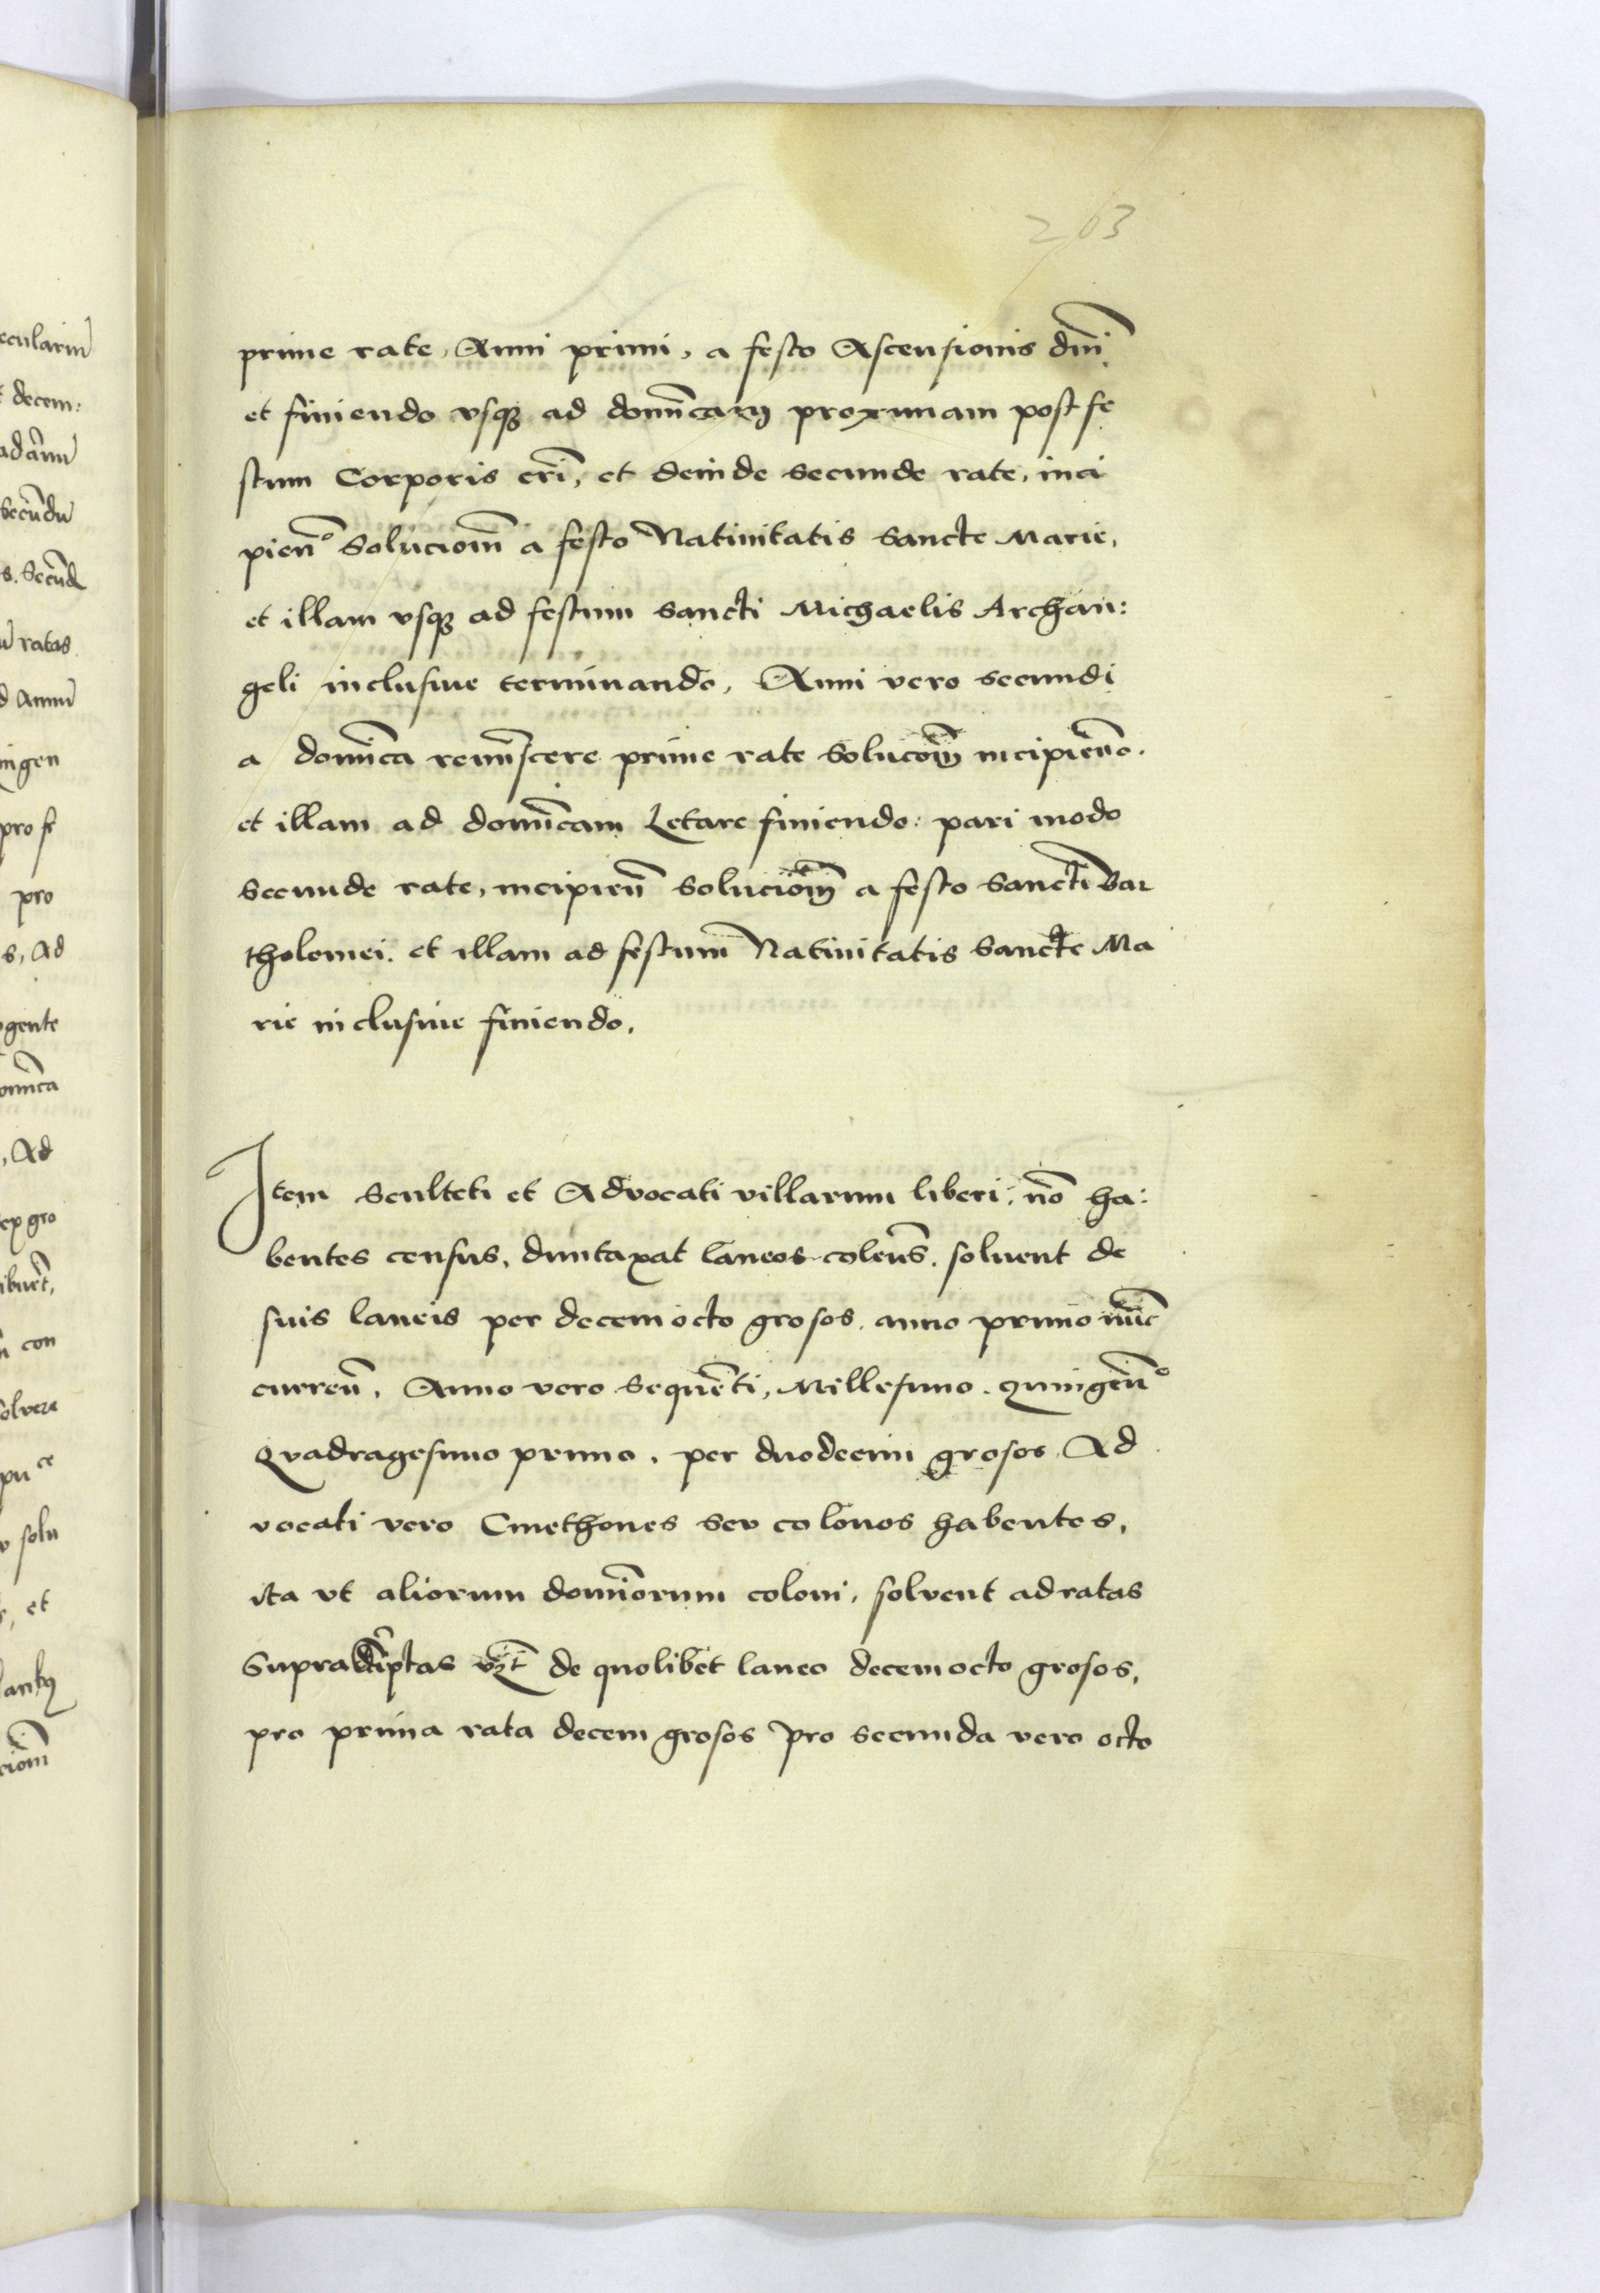 203
prime rate, Anni primi, a festo Ascensionis dm̄j
et finiendo vsqꝫ ad domīcam proximam post fe
stum Corporis crī, et deinde secunde rate, inci
pieñ° soluciom̄ a festo Natiuitatis sancte Marie,
et illam vsqꝫ ad festum sancti Michaelis Archan:
geli inclusiue terminando, Anni vero secundi
a domīca remīscere prime rate solucom̄ incipieño.
et illam ad domīcam Letare finiendo: pari modo
secunde rate, incipieñ soluciom̄ a festo sancti Bar
tholomei. et illam ad festum Natiuitatis sancte Ma
rie inclusiue finiendo.
Item sculteti et Advocati villarum liberi, nō ha:
bentes census, duntaxat laneos coleñs. soluent de
suis laneis per decem octo grosos. anno primo nūc
curreñ, Anno vero sequēti, Millesimo. quingeñ°
Quadragesimo primo, per duodecim grosos. Ad
vocati vero Cmethones sev colonos habentes,
ita vt aliorum domīorum coloni, solvent ad ratas
vꝫt de quolibet laneo decem octo grosos,
pro prima rata decem grosos pro secunda vero octo
ecularium̄
decem:
ad ānū
Secūdū
s. Secūd
ratas
d Annū
ingen
pro fe
pro
s, Ad
gente
omīca
, Ad
ex gro
con
solvere
solu
, et